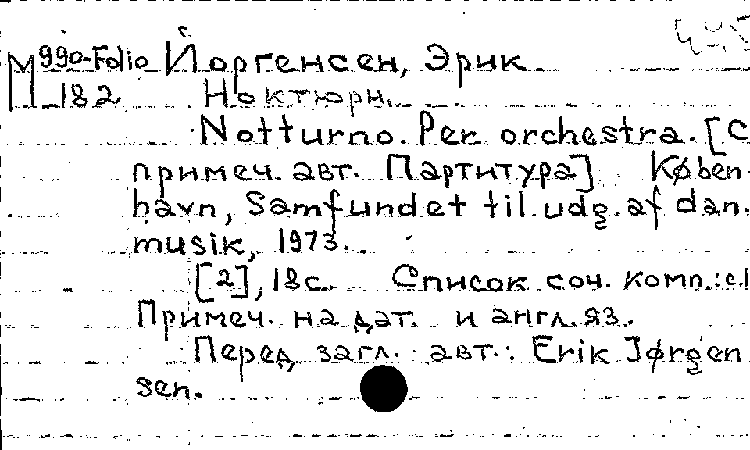 М 990-Folio Йоргенсен, Эрик
182 Ноктюрн.
Notturno. Per orchestra. [С
примеч. авт. Партитура] Køben-
havn, Samfundet til udg. af dan.
musik, 1973.
[2], 18 с. Список соч. комп.: с1
Примеч. на дат. и англ. яз.
Перед загл. авт.: Erik Jørgen
sen.